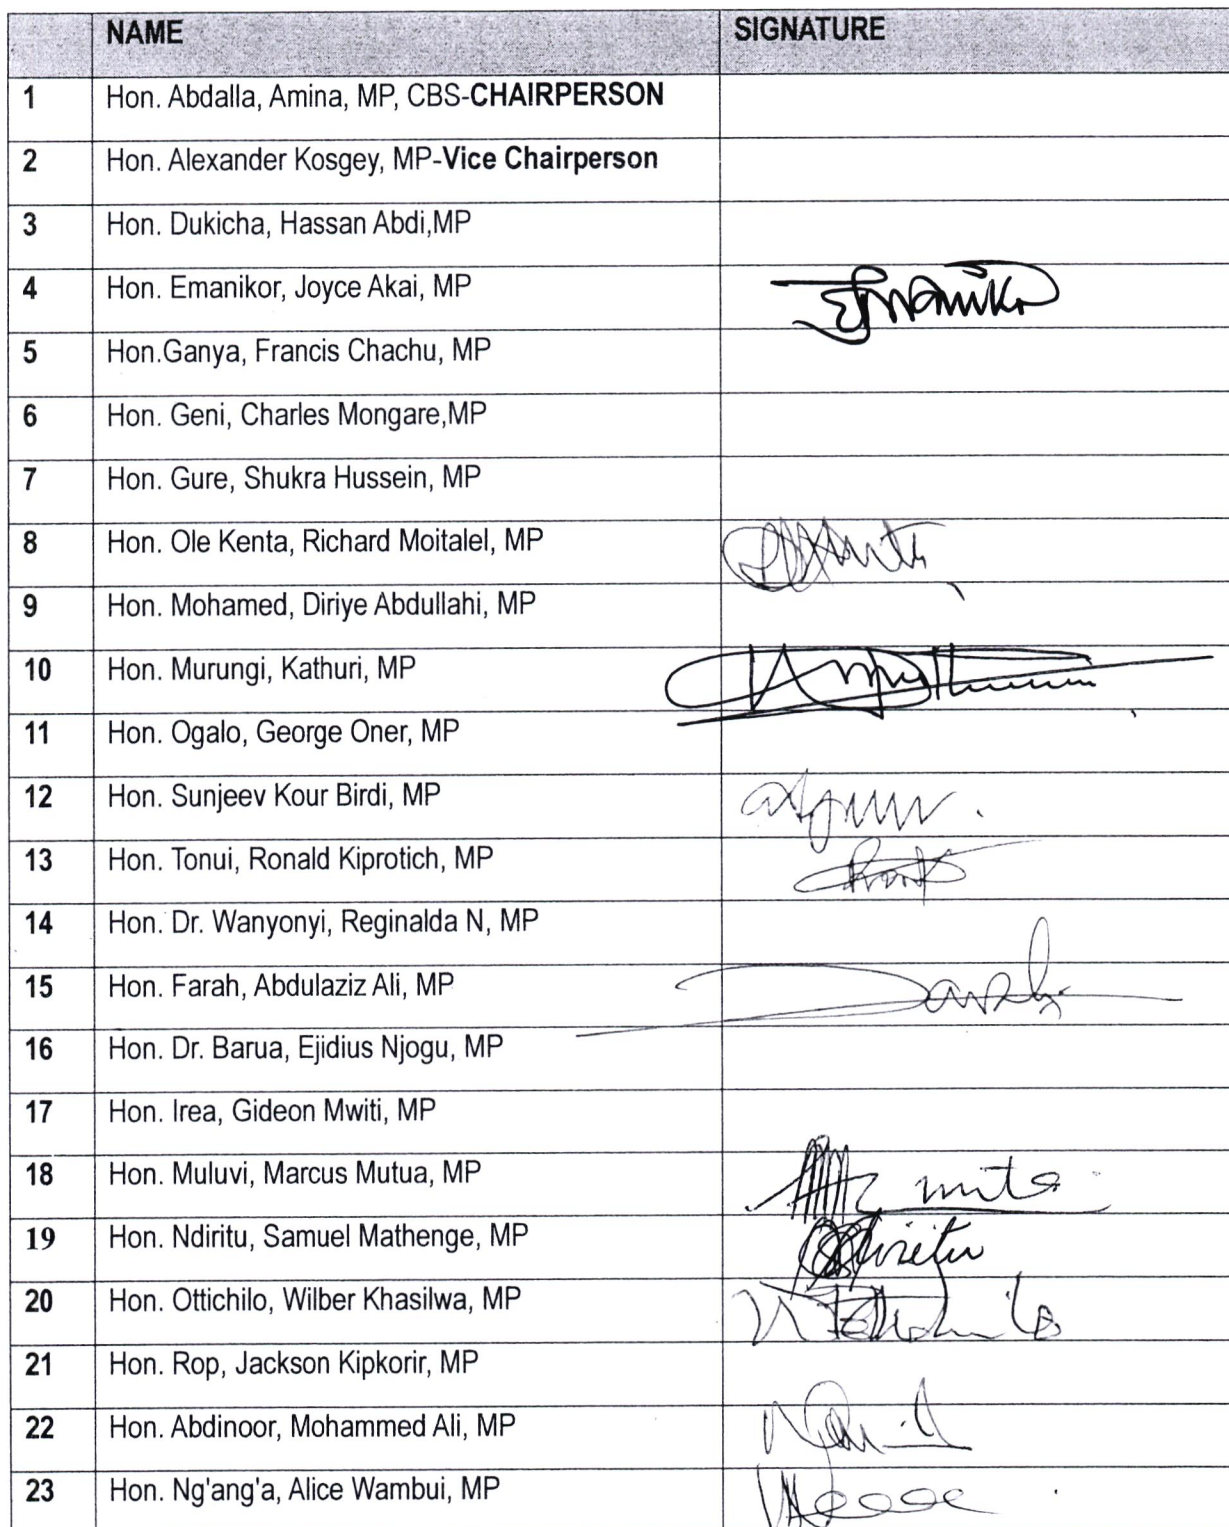 NAME SIGNATURE
1 Hon. Abdalla, Amina, MP, CBS-CHAIRPERSON
2 Hon. Alexander Kosgey, MP-Vice Chairperson
3 Hon. Dukicha, Hassan Abdi,MP
4 Hon. Emanikor, Joyce Akai, MP
5 Hon.Ganya, Francis Chachu, MP
6 Hon. Geni, Charles Mongare,MP
7 Hon. Gure, Shukra Hussein, MP
8 Hon. Ole Kenta, Richard Moitalel, MP
9 Hon. Mohamed, Diriye Abdullahi, MP
10 Hon. Murungi, Kathuri, MP
11 Hon. Ogalo, George Oner, MP
12 Hon. Sunjeev Kour Birdi, MP
13 Hon. Tonui, Ronald Kiprotich, MP
14 Hon. Dr. Wanyonyi, Reginalda N, MP
15 Hon. Farah, Abdulaziz Ali, MP
16 Hon. Dr. Barua, Ejidius Njogu, MP
17 Hon. Irea, Gideon Mwiti, MP
18 Hon. Muluvi, Marcus Mutua, MP
19 Hon. Ndiritu, Samuel Mathenge, MP
20 Hon. Ottichilo, Wilber Khasilwa, MP
21 Hon. Rop, Jackson Kipkorir, MP
22 Hon. Abdinoor, Mohammed Ali, MP
23 Hon. Ng'ang'a, Alice Wambui, MP